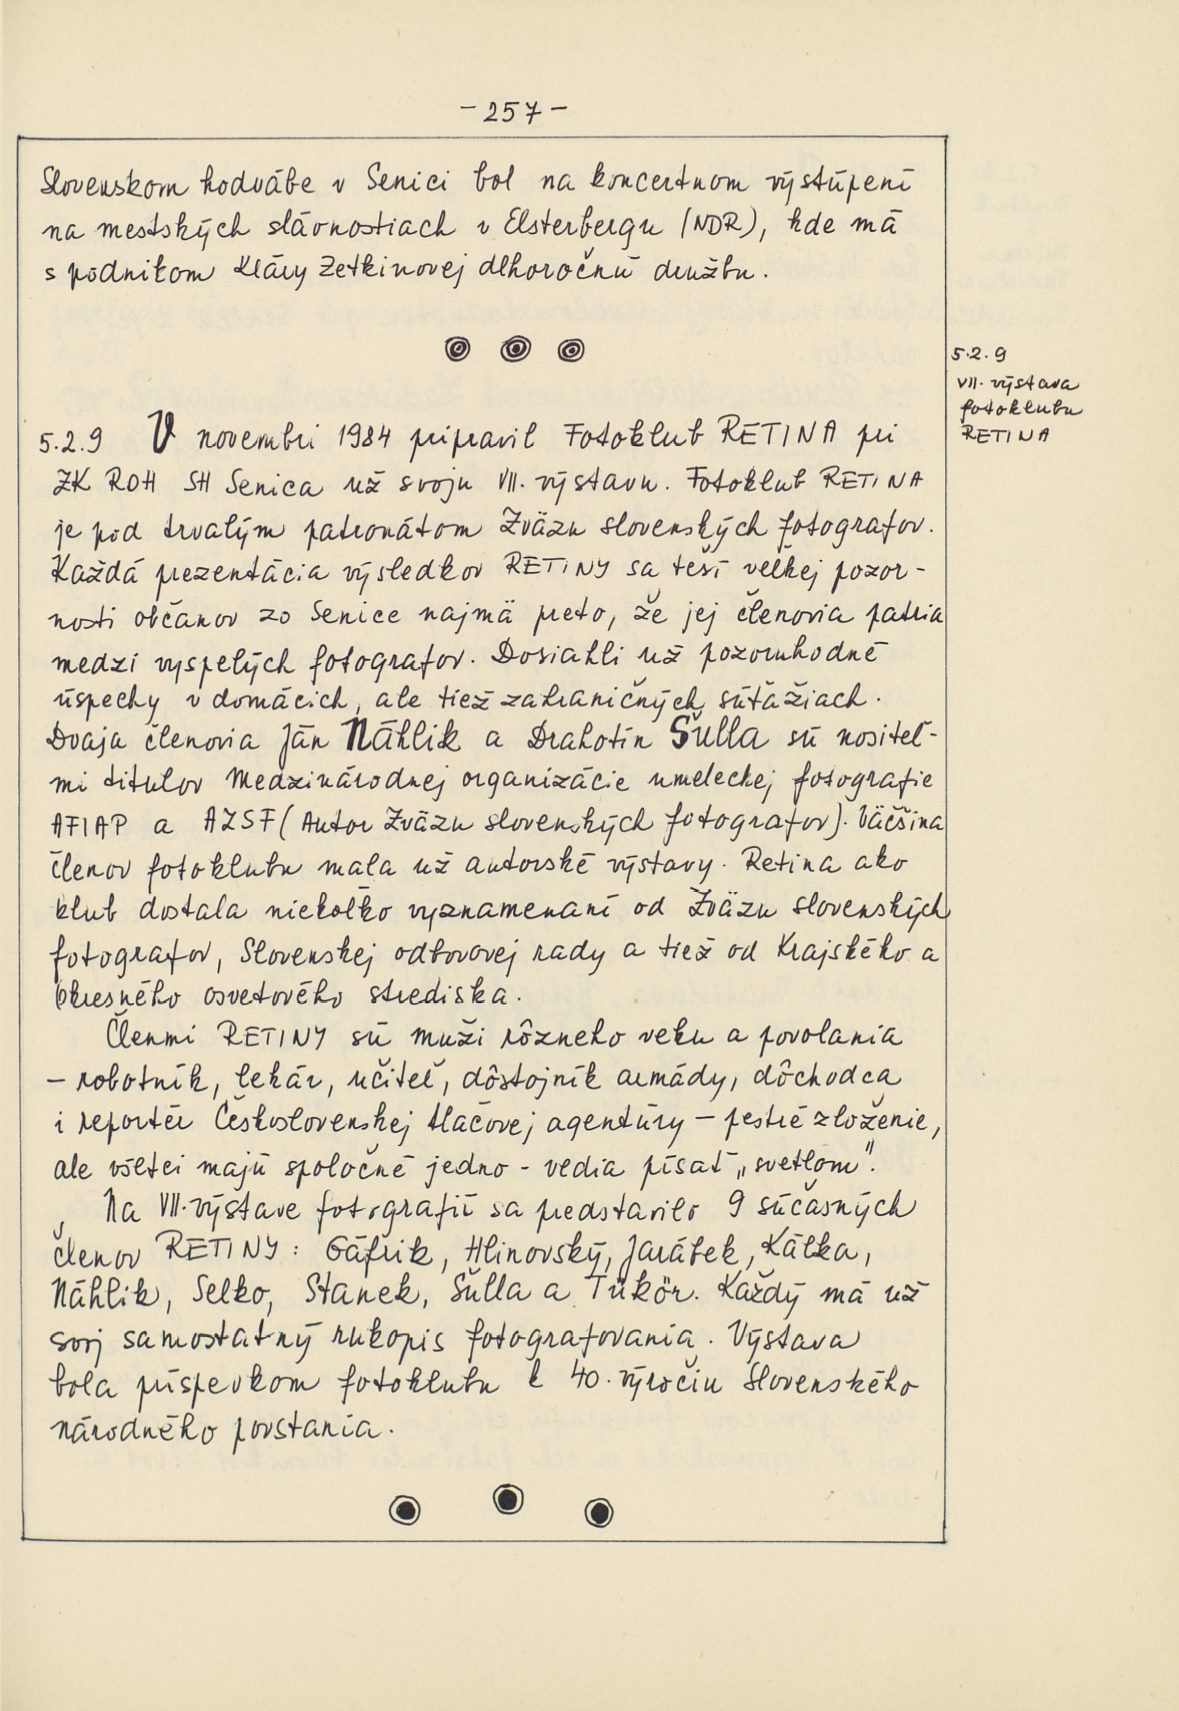 - 257 -
Slovenskom hodvábe v Senici bol na koncertnom výstúpení
na mestských slávnostiach v Elsterbergu (NDR), kde má
s podnikom Kláry Zetkinovej dlhoročnú družbu.
5.2.9
VII. výstava
fotoklubu
RETINA
5.2.9 V novembri 1984 pripravil Fotoklub RETINA pri
ZK ROH SH Senica už svoju VII. výstavu. Fotoklub RETINA
je pod trvalým patronátom Zväzu slovenských fotografov.
Každá prezentácia výsledkov RETINY sa teší veľkej pozor-
nosti občanov zo Senice najmä preto, že jej členovia patria
medzi vyspelých fotografov. Dosiahli už pozoruhodné
úspechy v domácich, ale tiež zahraničných súťažiach.
Dvaja členovia Ján Náhlik a Drahotín Šulla sú nositeľ-
mi titulov Medzinárodnej organizácie umeleckej fotografie
AFIAP a AZSF (Autor Zväzu slovenských fotografov). Väčšina
členov fotoklubu mala už autorské výstavy. Retina ako
klub dostala niekoľko vyznamenaní od Zväzu slovenských
fotografov, Slovenskej odborovej rady a tiež od Krajského a
Okresného osvetového strediska.
Členmi RETINY sú muži rôzneho veku a povolania
- robotník, lekár, učiteľ, dôstojník armády, dôchodca
i reportér Československej tlačovej agentúry - pestré zloženie,
ale všetci majú spoločné jedno - vedia písať „svetlom".
Na VII. výstave fotografií sa predstavilo 9 súčasných
členov RETINY: Gáfrik, Hlinovský, Jarábek, Kálka,
Náhlik, Selko, Stanek, Šulla a Tükör. Každý má už
svoj samostatný rukopis fotografovania. Výstava
bola príspevkom fotoklubu k 40. výročiu Slovenského
národného povstania.